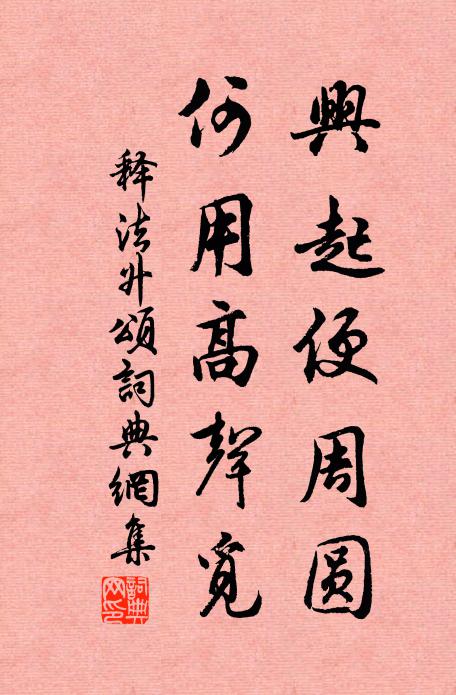 興起便周圆
何用高聲覓
释法升頌詞典網集
詞典网印